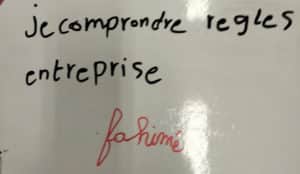 je comprondre regles
entreprise
fahimé